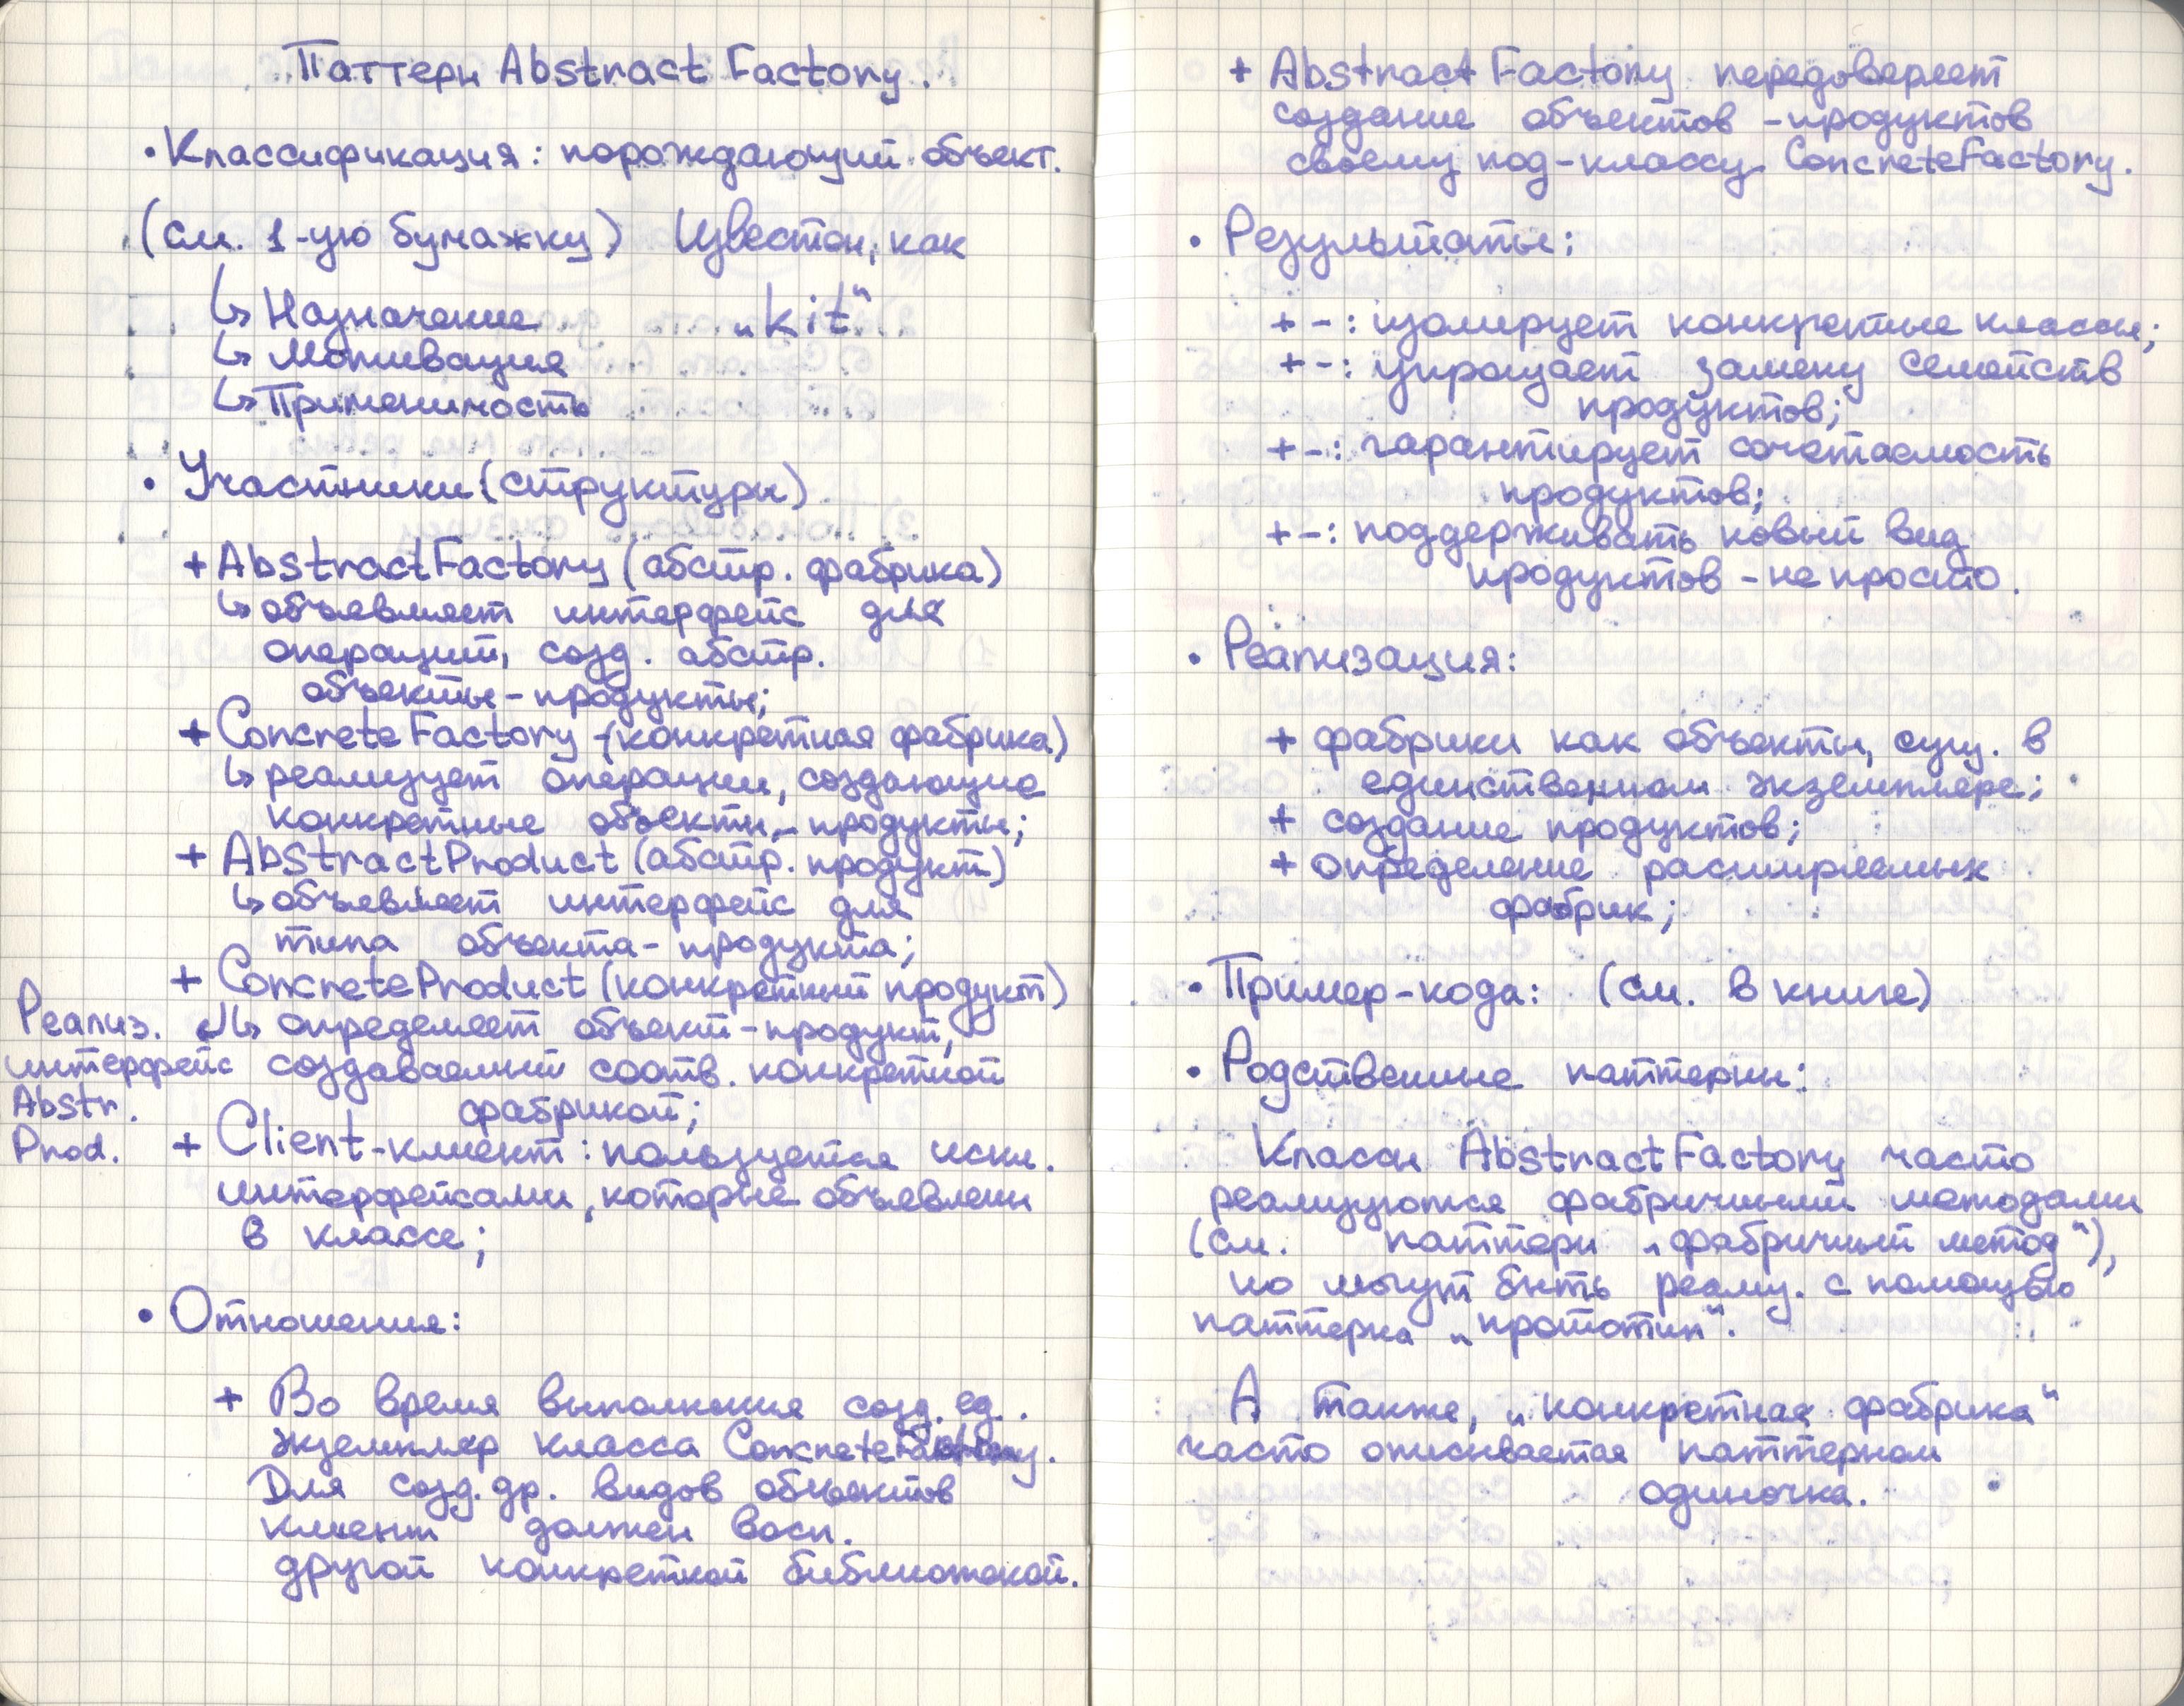 Паттерн Abstract Factory.
• Классификация: порождающий объект.
(см. 1-ую бумажку) Известен, как
↳ Назначение „kit“
↳ Мотивация
↳ Применимость
• Участники (структуры)
+ AbstractFactory (абстр. фабрика)
↳ объявляет интерфейс для
операций, созд. абстр.
объекты-продукты;
+ ConcreteFactory - (конкретная фабрика)
↳ реализует операции, создающие
конкретные объекты-продукты;
+ AbstractProduct (абстр. продукт)
↳ объявляет интерфейс для
типа объекта-продукта;
+ ConcreteProduct (конкретный продукт)
↳ определяет объект-продукт,
создаваемый соотв. конкретной
фабрикой;
Реализ.
интерфейс
Abstr.
Prod.
+ Client-клиент: пользуется искл.
интерфейсами, которые объявлены
в классе;
• Отношения:
+ Во время выполнения созд. ед.
экземпляр класса ConcreteFactory.
Для созд. др. видов объектов
клиент должен восп.
другой конкретной библиотекой.
+ AbstractFactory передоверяет
создание объектов-продуктов
своему под-классу ConcreteFactory.
• Результаты:
+ - : изолирует конкретные классы;
+ - : упрощает замену семейств
продуктов;
+ - : гарантирует сочетаемость
продуктов;
+ - : поддерживать новый вид
продуктов - не просто.
• Реализация:
+ фабрики как объекты, сущ. в
единственном экземпляре;
+ создание продуктов;
+ определение расширяемых
фабрик;
• Пример-кода: (см. в книге)
• Родственные паттерны:
Классы AbstractFactory часто
реализуются фабричными методами
(см. паттерн „фабричный метод“),
но могут быть реализ. с помощью
паттерна „прототип“.
А также, „конкретная фабрика“
часто описывается паттерном
одиночка.